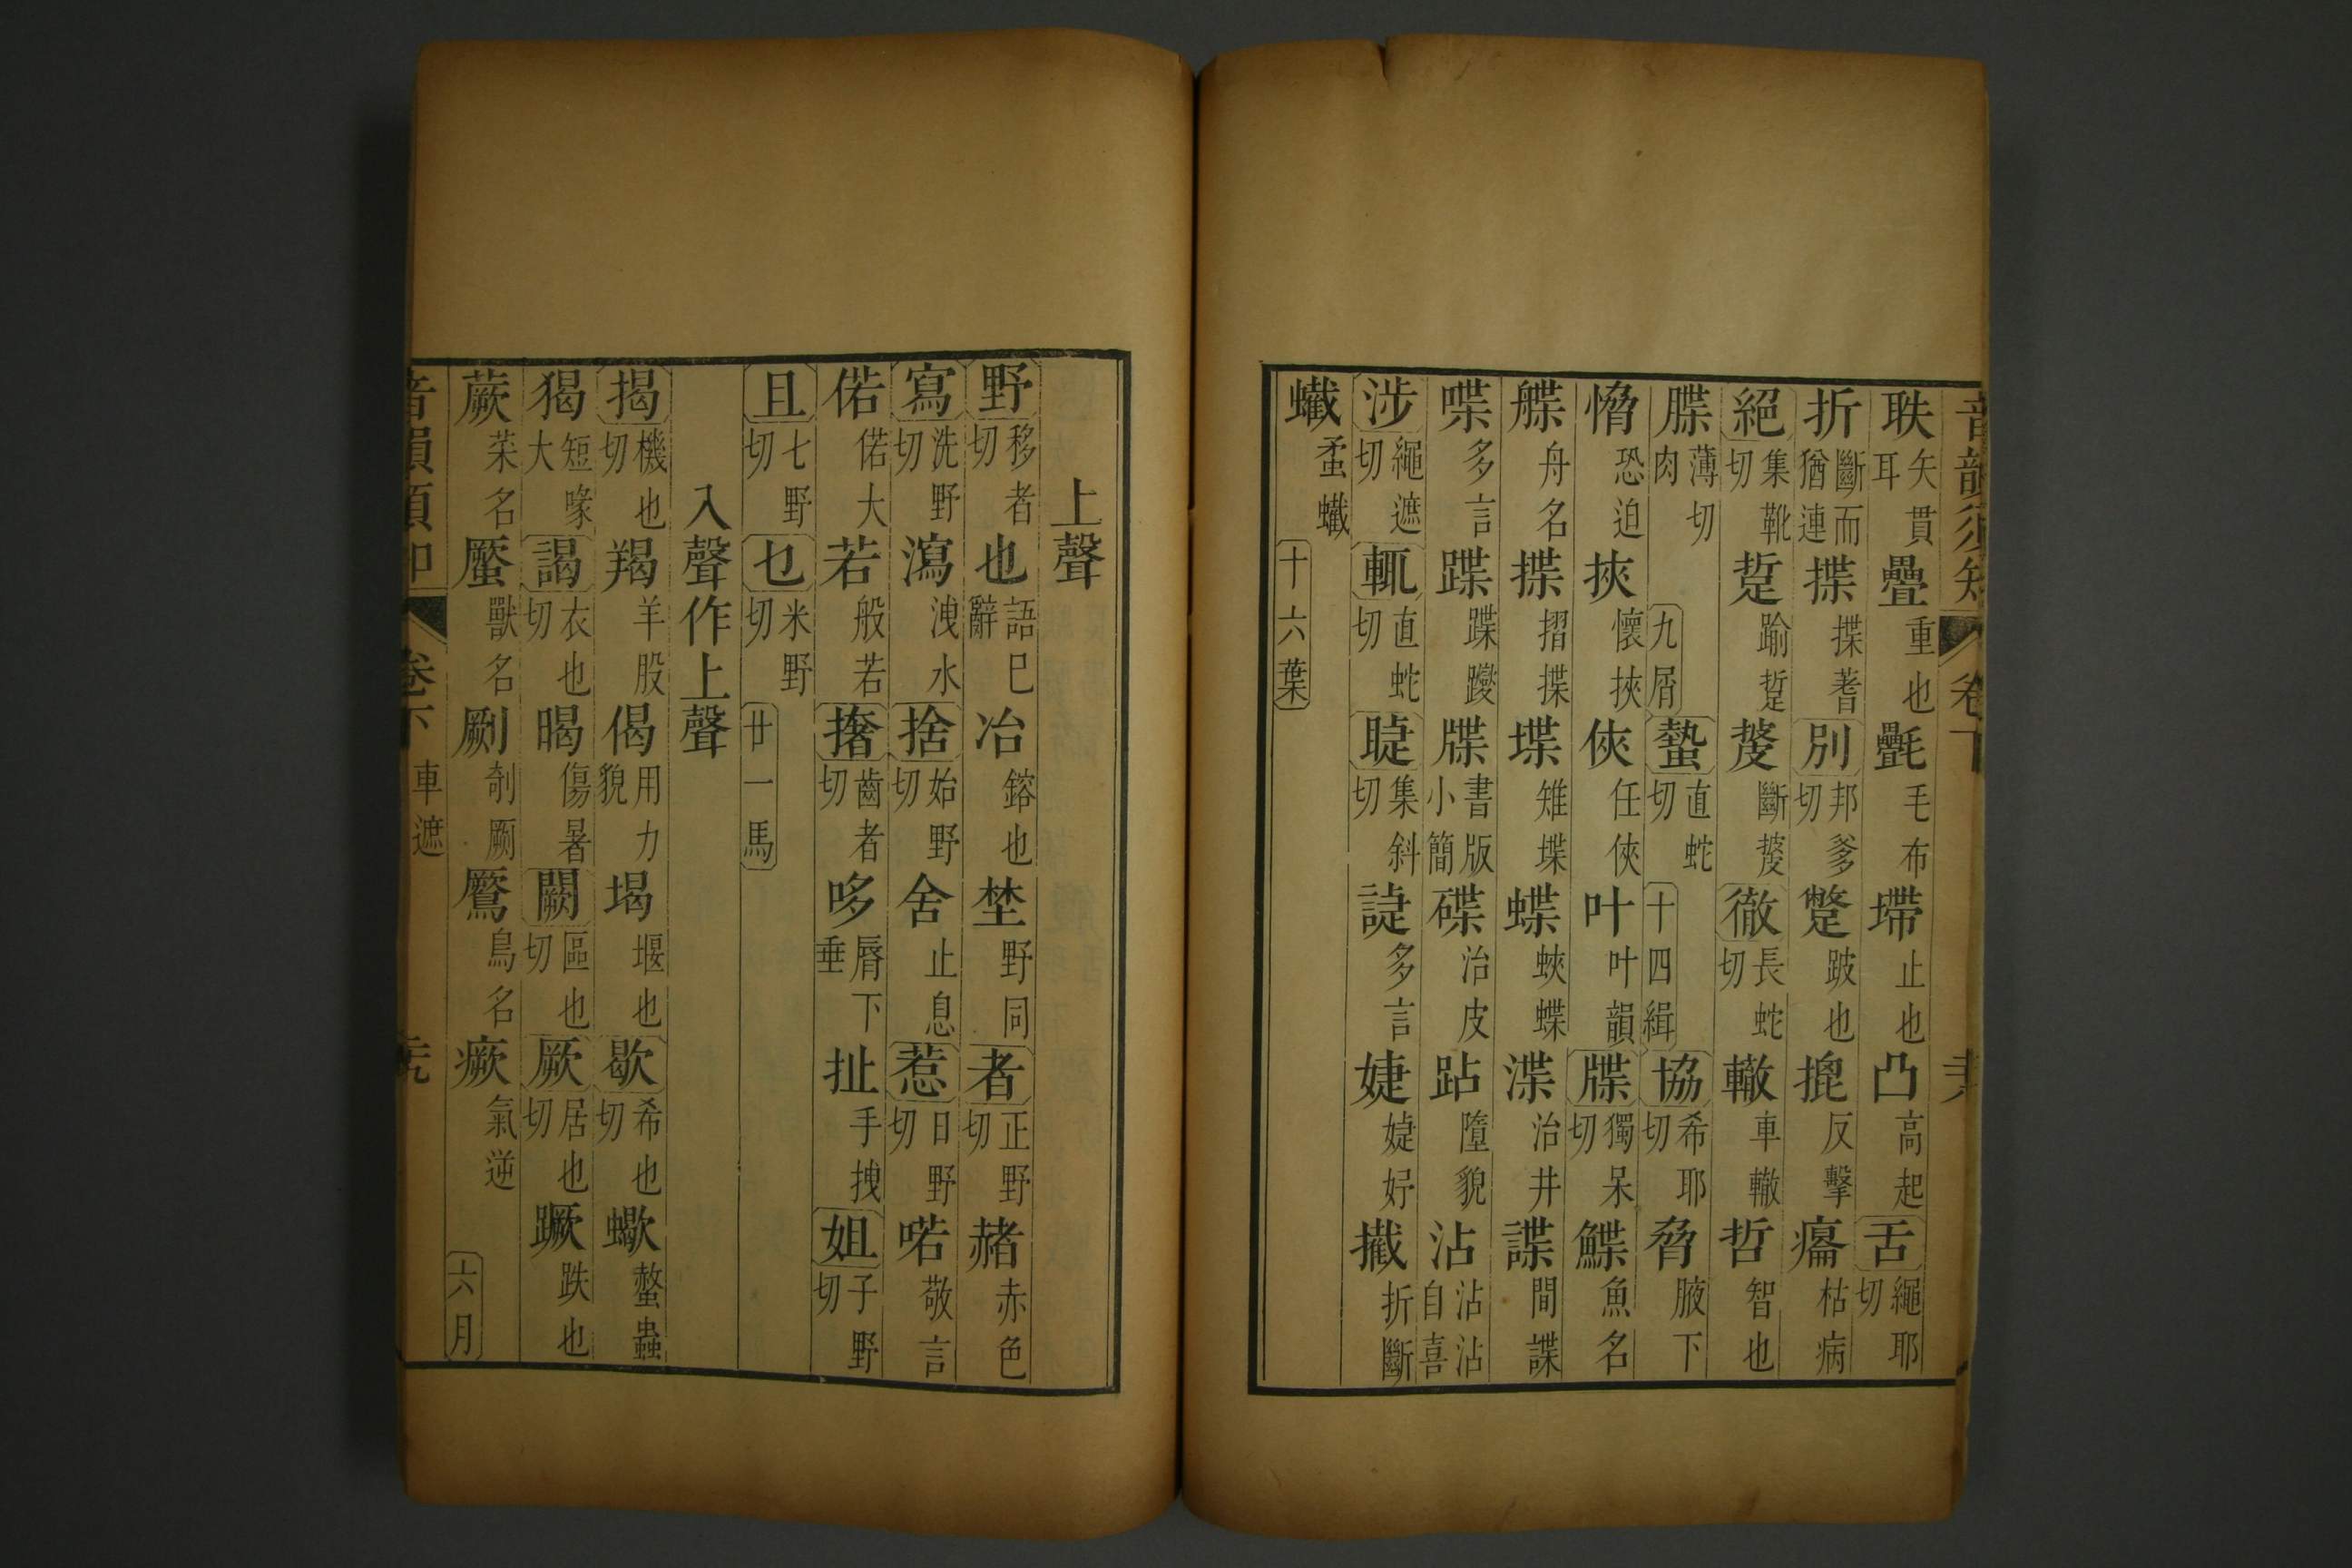 音韻須知 卷下
耴矢貫耳 疊重也 氎毛布 墆止也 凸高起 舌繩耶切
折斷而猶連 揲揲蓍 別邦爹切 蹩跛也 㧙反擊 癟枯病
絕集靴切 踅踰踅 㪇斷㪇 徹長蛇切 轍車轍 哲智也
牒薄切肉 九屑 蟄直蛇切 十四緝 協希耶切 脅腋下
愶恐迫 挾懷挾 俠任俠 叶叶韻 牒獨呆切 鰈魚名
艓舟名 揲摺揲 堞雉堞 蝶蛺蝶 渫治井 諜間諜
喋多言 蹀蹀躞 牒書版小簡 碟治皮 跕墮貌 沾沾沾自喜
涉繩遮切 輒直蛇切 睫集斜切 誱多言 婕婕妤 擮折斷
蠘蝥蠘 十六葉
上聲
野移者切 也語巳辭 冶鎔也 埜野同 者正野切 赭赤色
寫洗野切 瀉洩水 捨始野切 舍止息 惹日野切 喏敬言
偌偌大 若般若 撦齒者切 哆脣下垂 扯手拽 姐子野切
且七野切 乜米野切 廿一馬
入聲作上聲
揭機也切 羯羊股 偈用力貌 堨堰也 歇希也切 蠍螫蟲
猲短喙大 謁衣也切 暍傷暑 闕區也切 厥居也切 蹶跌也
蕨菜名 蟨獸名 劂剞劂 鷢鳥名 瘚氣逆 六月
音韻須知 卷下 車遮